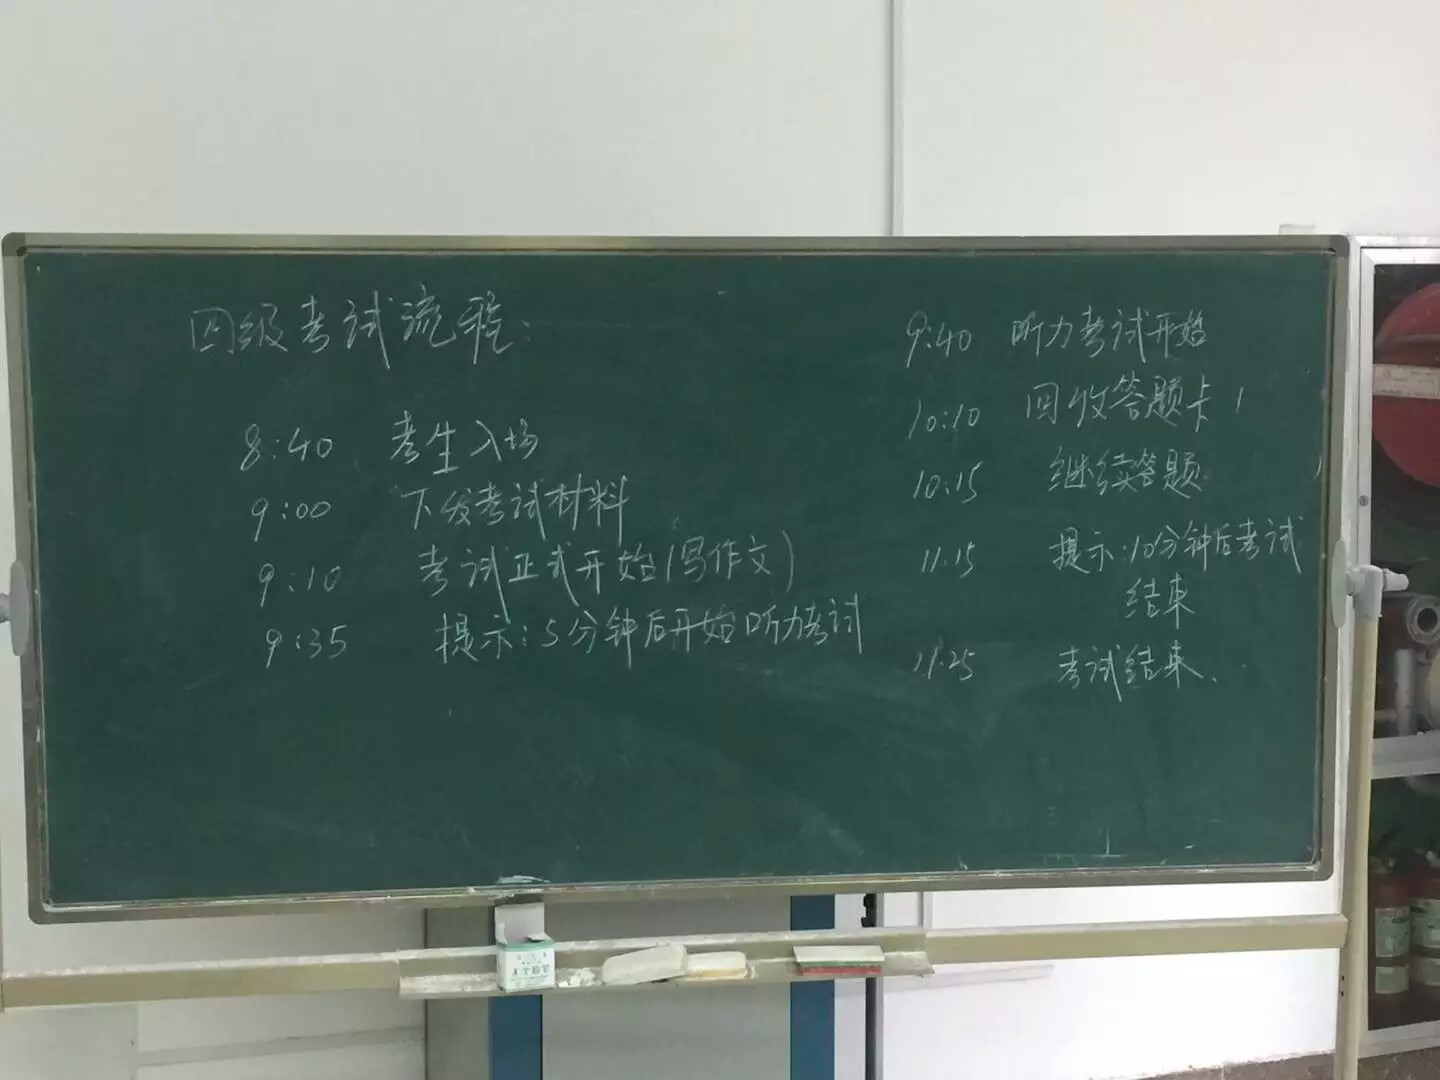 四级考试流程:
8:40 考生入场
9:00 下发考试材料
9:10 考试正式开始(写作文)
9:35 提示:5分钟后开始听力考试
9:40 听力考试开始
10:10 回收答题卡1
10:15 继续答题
11:15 提示:10分钟后考试
结束
11:25 考试结束.